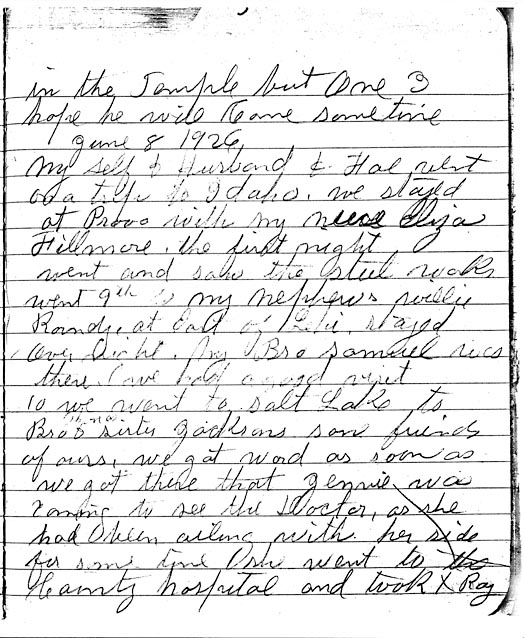 in the Temple but One I
hope he will Come sometime
June 8 1926
My self & Husband & Hal went
on a trip to Idaho. we stayed
at Provo with my niece Eliza
Fillmore. the first night
went and saw the steel works
went 9th to my nephews willie
Roundy. at East of Lehi. stayed
over Night. My Bro Samuel was
there. we had a good visit
10 we went to Salt Lake to
Bro & sister Jacksons some friends
of ours, we got word as soon as
we got there that Jennie was
Coming to see the Doctor, as she
had been ailing with her side
for some time she went to the
County hospital and took X Ray